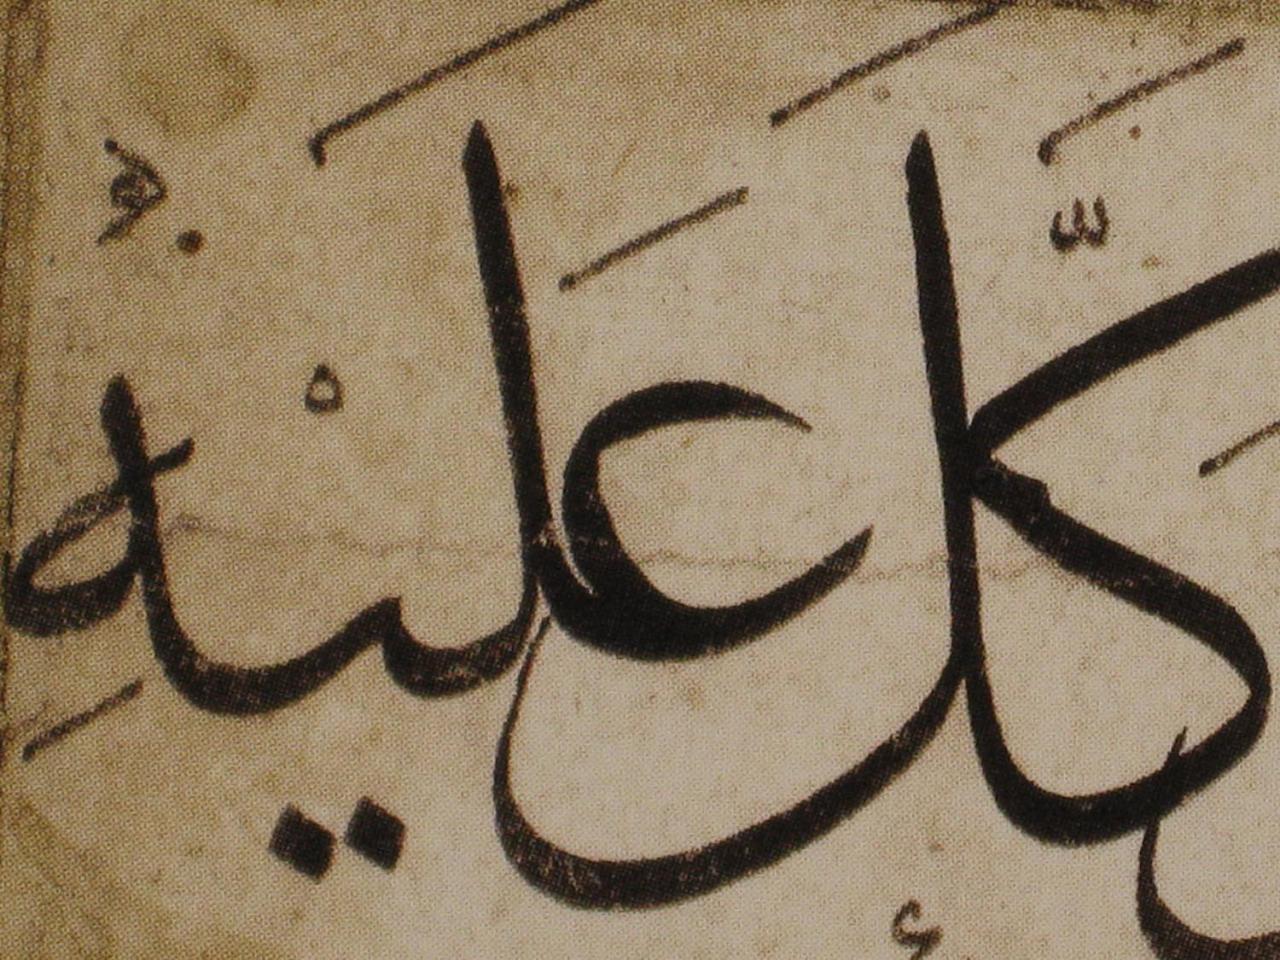 كَّل عَلَيْهِ